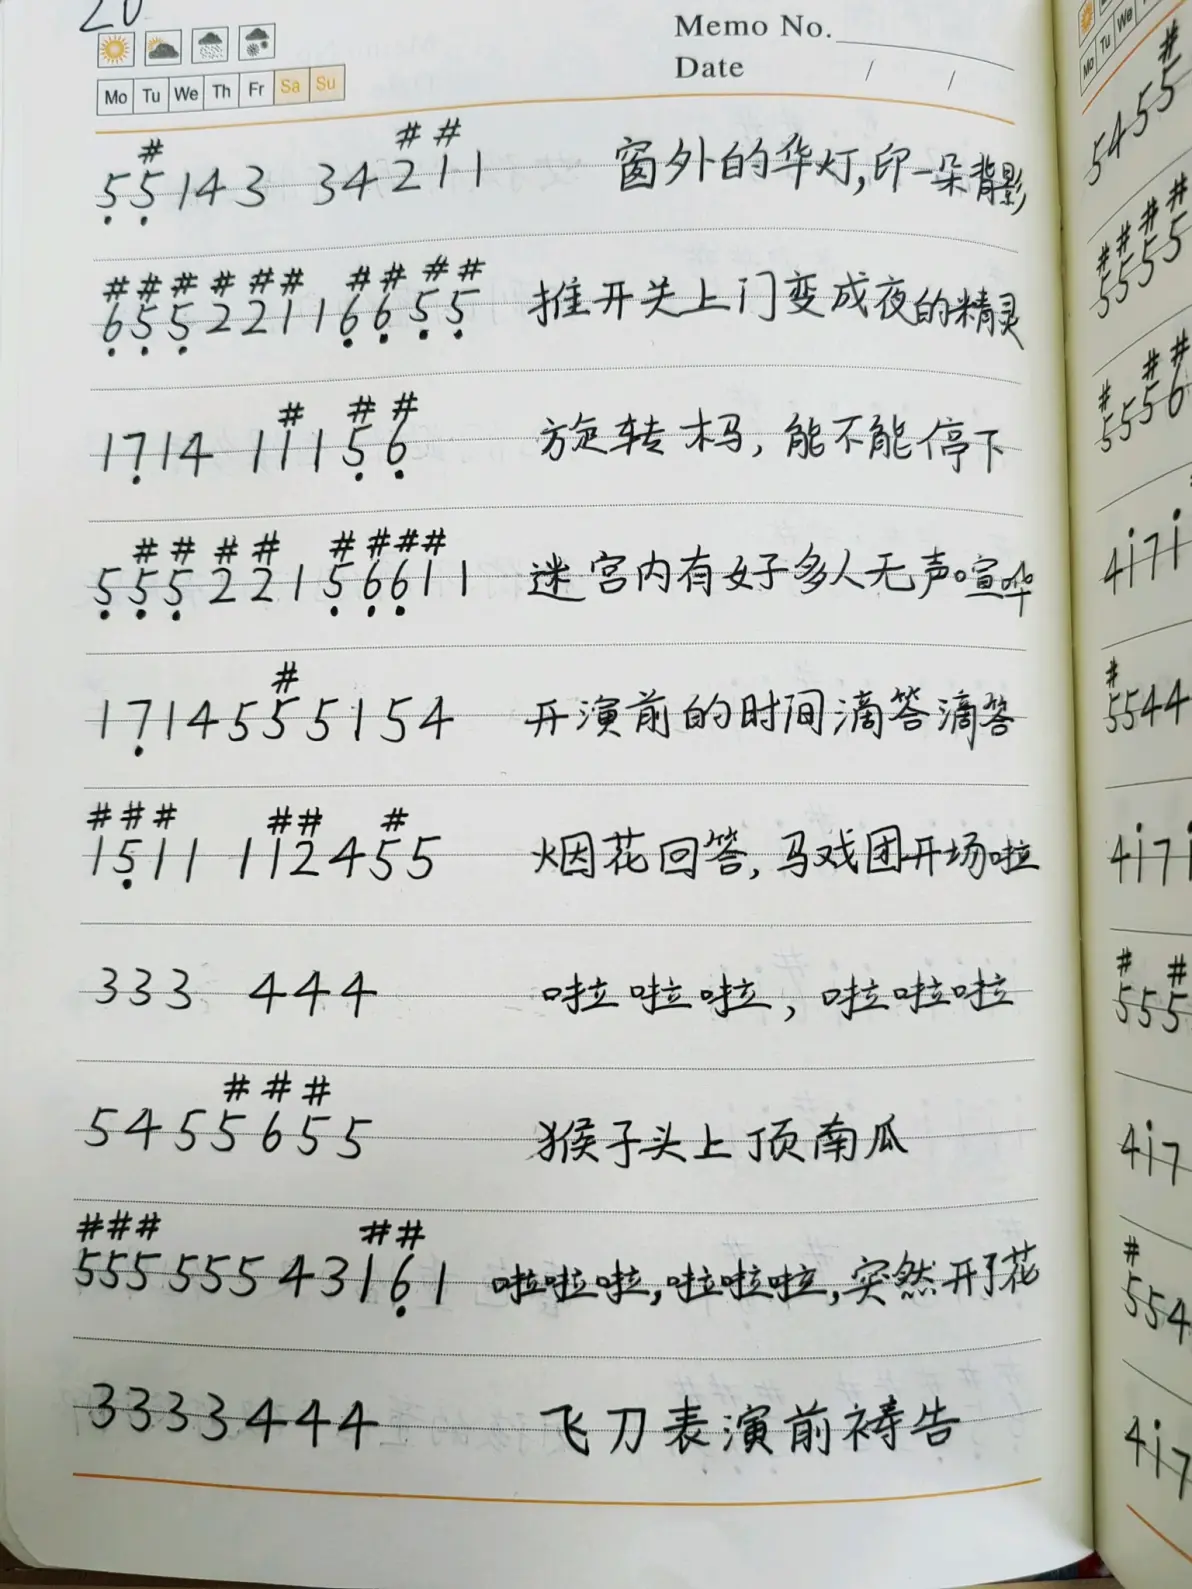 20
Memo No.
Date / /
Mo Tu We Th Fr Sa Su
# # #
5̣5̣143 34211 窗外的华灯,印一朵背影
# # # # # # # # # #
6̣5̣5̣22116̣6̣5̣5̣ 推开关上门变成夜的精灵
# # #
17̣14 1115̣6̣ 旋转木马, 能不能停下
# # # # # # # #
5̣5̣5̣2215̣6̣6̣11 迷宫内有好多人无声喧哗
#
17̣14555154 开演前的时间滴答滴答
# # # # # #
15̣11 112455 烟花回答, 马戏团开场啦
333 444 啦啦啦, 啦啦啦
# # #
5455655 猴子头上顶南瓜
# # # # #
555555 4316̣1 啦啦啦,啦啦啦,突然开了花
3333444 飞刀表演前祷告
Mo Tu We
#
5455
# # # #
5555
# # #
5556
4i̇7i̇
#
5544
4i̇7i̇
# #
555
4i̇7
#
554
4i̇7